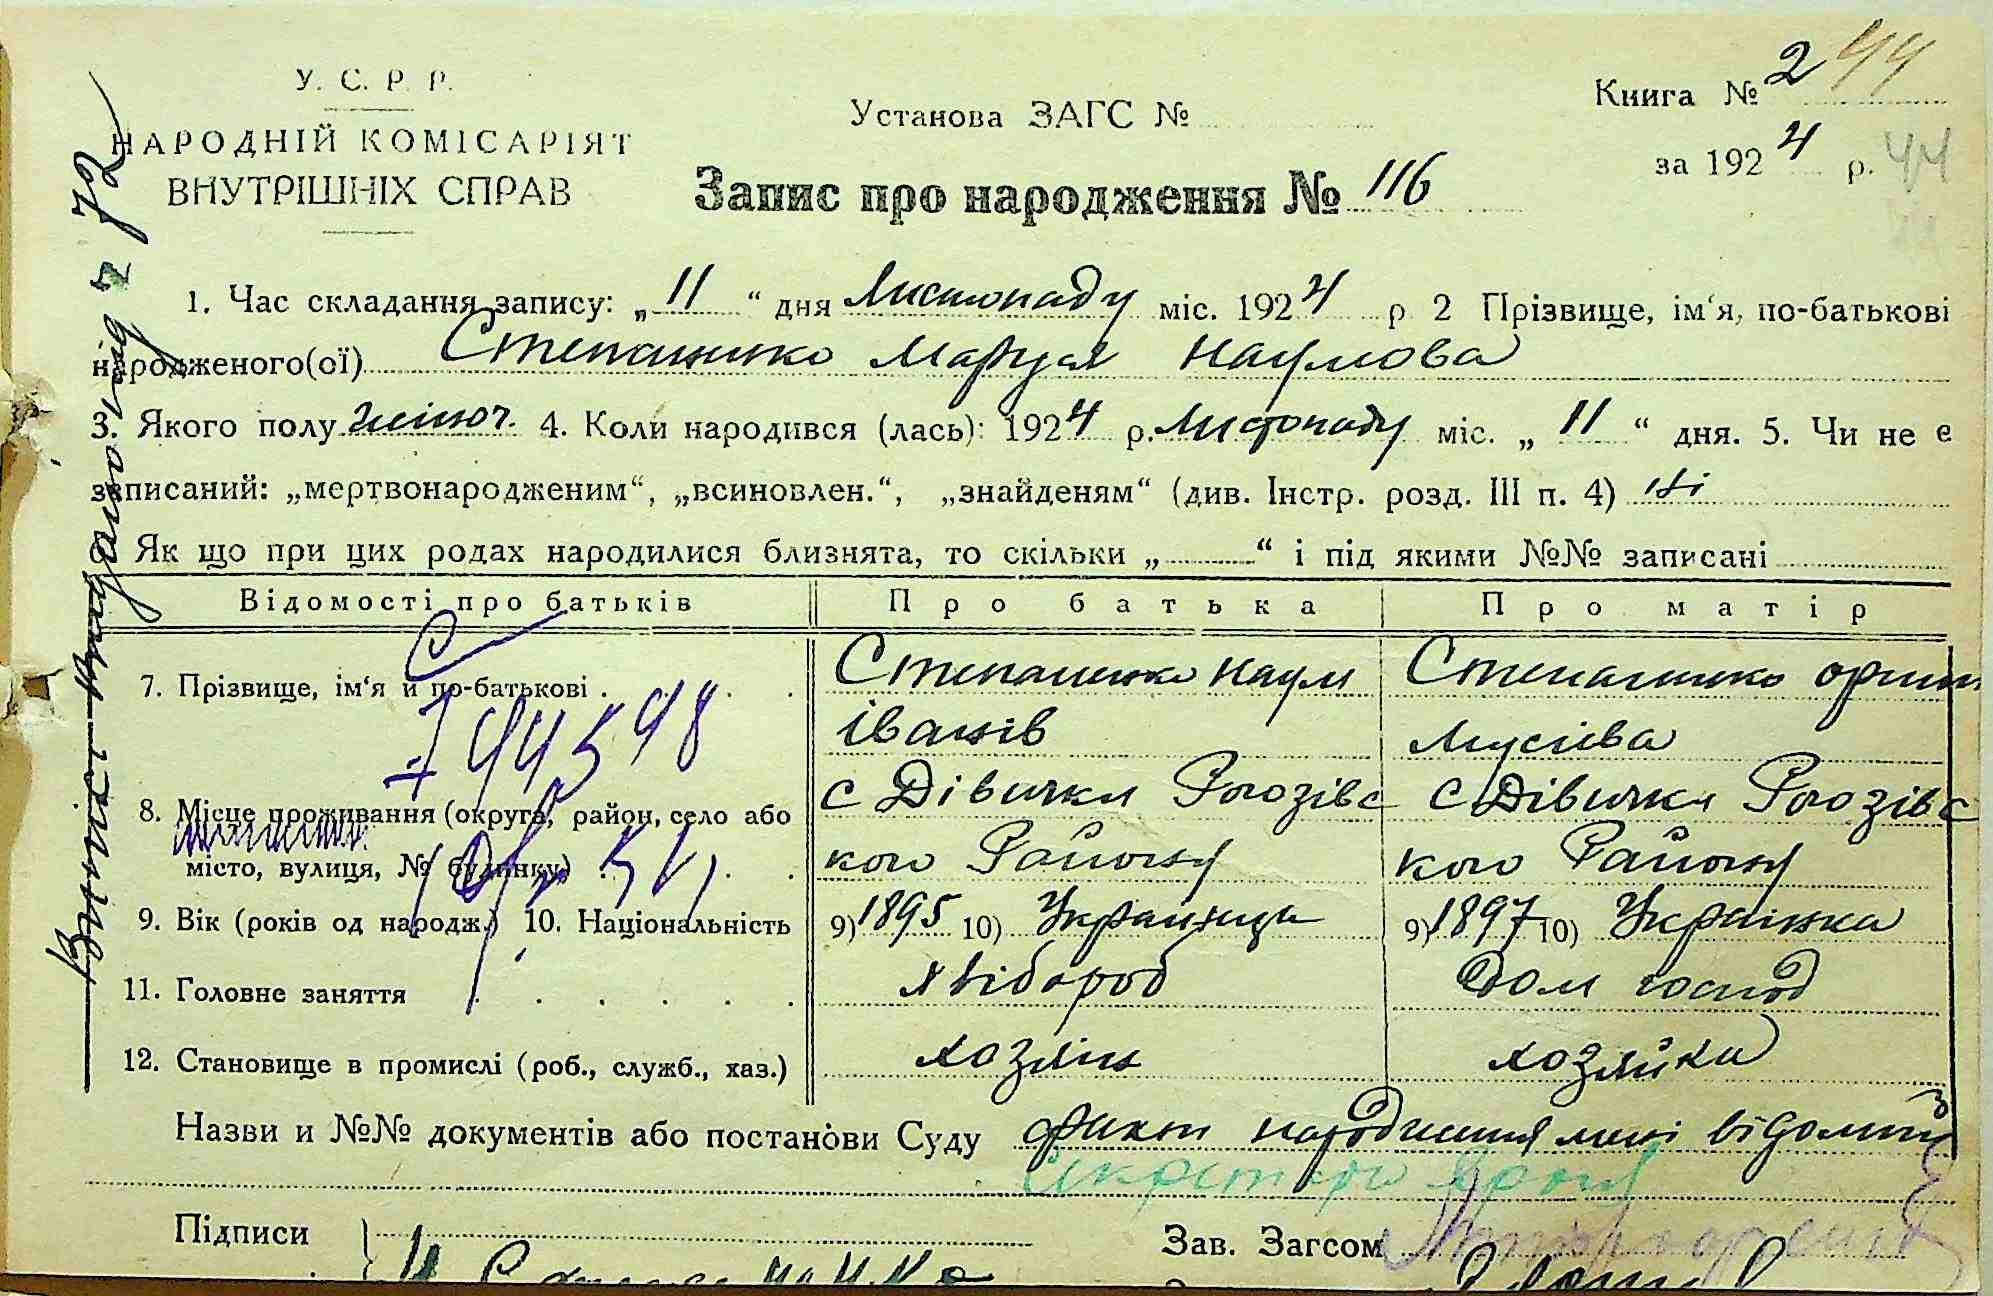 У. С. Р. Р.
НАРОДНІЙ КОМІСАРІЯТ
ВНУТРІШНІХ СПРАВ
Установа ЗАГС №
Книга № 2 44
за 1924 р. 44
Запис про народження № 116
1. Час складання запису: „11“ дня Листопаду міс. 1924 р 2 Прізвище, ім‘я, по-батькові
народженого(ої) Степаненко Маруся Наумова
3. Якого полу жіноч. 4. Коли народився (лась): 1924 р. Листопаду міс. „11“ дня. 5. Чи не є
записаний: „мертвонародженим“, „всиновлен.“, „знайденям“ (див. Інстр. розд. III п. 4) ні
Як що при цих родах народилися близнята, то скільки „ “ і під якими №№ записані
Відомості про батьків Про батька Про матір
7. Прізвище, ім‘я й по-батькові Степаненко Наум Степаненко Орина
Іванів Мусіева
8. Місце проживання (округа, район, село або с Дівички Рогозівс с Дівички Рогозівс
місто, вулиця, № будинку) кого Району кого Району
9. Вік (років од народж.) 10. Національність 9) 1895 10) Українець 9) 1897 10) Українка
11. Головне заняття хлібороб Дом господ
12. Становище в промислі (роб., служб., хаз.) хозяін хозяйка
Назви и №№ документів або постанови Суду факт народження мені відомий
Підписи
Зав. Загсом